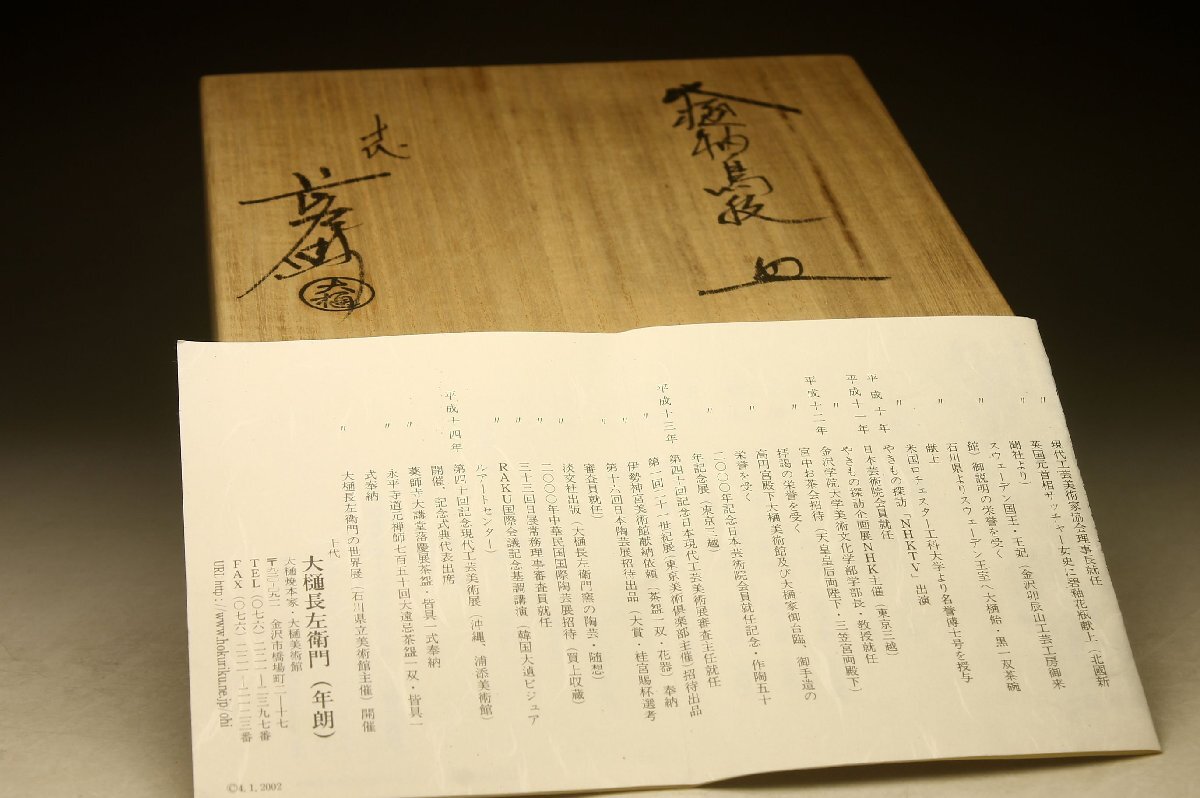 皿
十代
大樋
〃 現代工芸美術家協会理事長就任
〃 英国元首相サッチャー女史に器釉花瓶献上(北國新
聞社より)
〃 スウェーデン国王・王妃(金沢卯辰山工芸工房御来
館)御説明の栄誉を受く
〃 石川県よりスウェーデン王室へ大樋飴・黒一双茶碗
献上
〃 米国ロチェスター工科大学より名誉博士号を授与
平成十年 やきもの探訪「NHKTV」出演
平成十一年 日本芸術院会員就任
やきもの探訪企画展NHK主催(東京三越)
平成十二年 金沢学院大学美術文化学部学部長・教授就任
〃 宮中お茶会招待(天皇皇后両陛下・三笠宮両殿下)
拝謁の栄誉を受く
〃 高円宮殿下大樋美術館及び大樋家御台臨、御手造の
栄誉を受く
〃 二〇〇〇年記念日本芸術院会員就任記念・作陶五十
年記念展(東京三越)
平成十三年 第四十回記念日本現代工芸美術展審査主任就任
〃 第一回二十一世紀展(東京美術倶楽部主催)招待出品
〃 伊勢神宮美術館献納依頼(茶盌一双・花器)奉納
〃 第十六回日本陶芸展招待出品(大賞・桂宮賜杯選考
審査員就任)
〃 淡交社出版(大樋長左衛門窯の陶芸・随想)
〃 二〇〇〇年中華民国国際陶芸展招待(買上収蔵)
〃 三十三回日展常務理事審査員就任
〃 RAKU国際会議記念基調講演(韓国大邱ビジュア
ルアートセンター)
平成十四年 第四十回記念現代工芸美術展(沖縄、浦添美術館)
開催、記念式典代表出席
〃 薬師寺大講堂落慶展茶盌・皆具一式奉納
〃 永平寺道元禅師七百五十回大遠忌茶盌一双・皆具一
式奉納
〃 大樋長左衛門の世界展(石川県立美術館主催)開催
十代
大樋長左衛門(年朗)
大樋焼本家・大樋美術館
金沢市橋場町二―十七
TEL(〇七六)二二一―二三九七番
FAX(〇七六)二二一―二一二三番
URL http://www.hokuriku.ne.jp/ohi
©4.1.2002